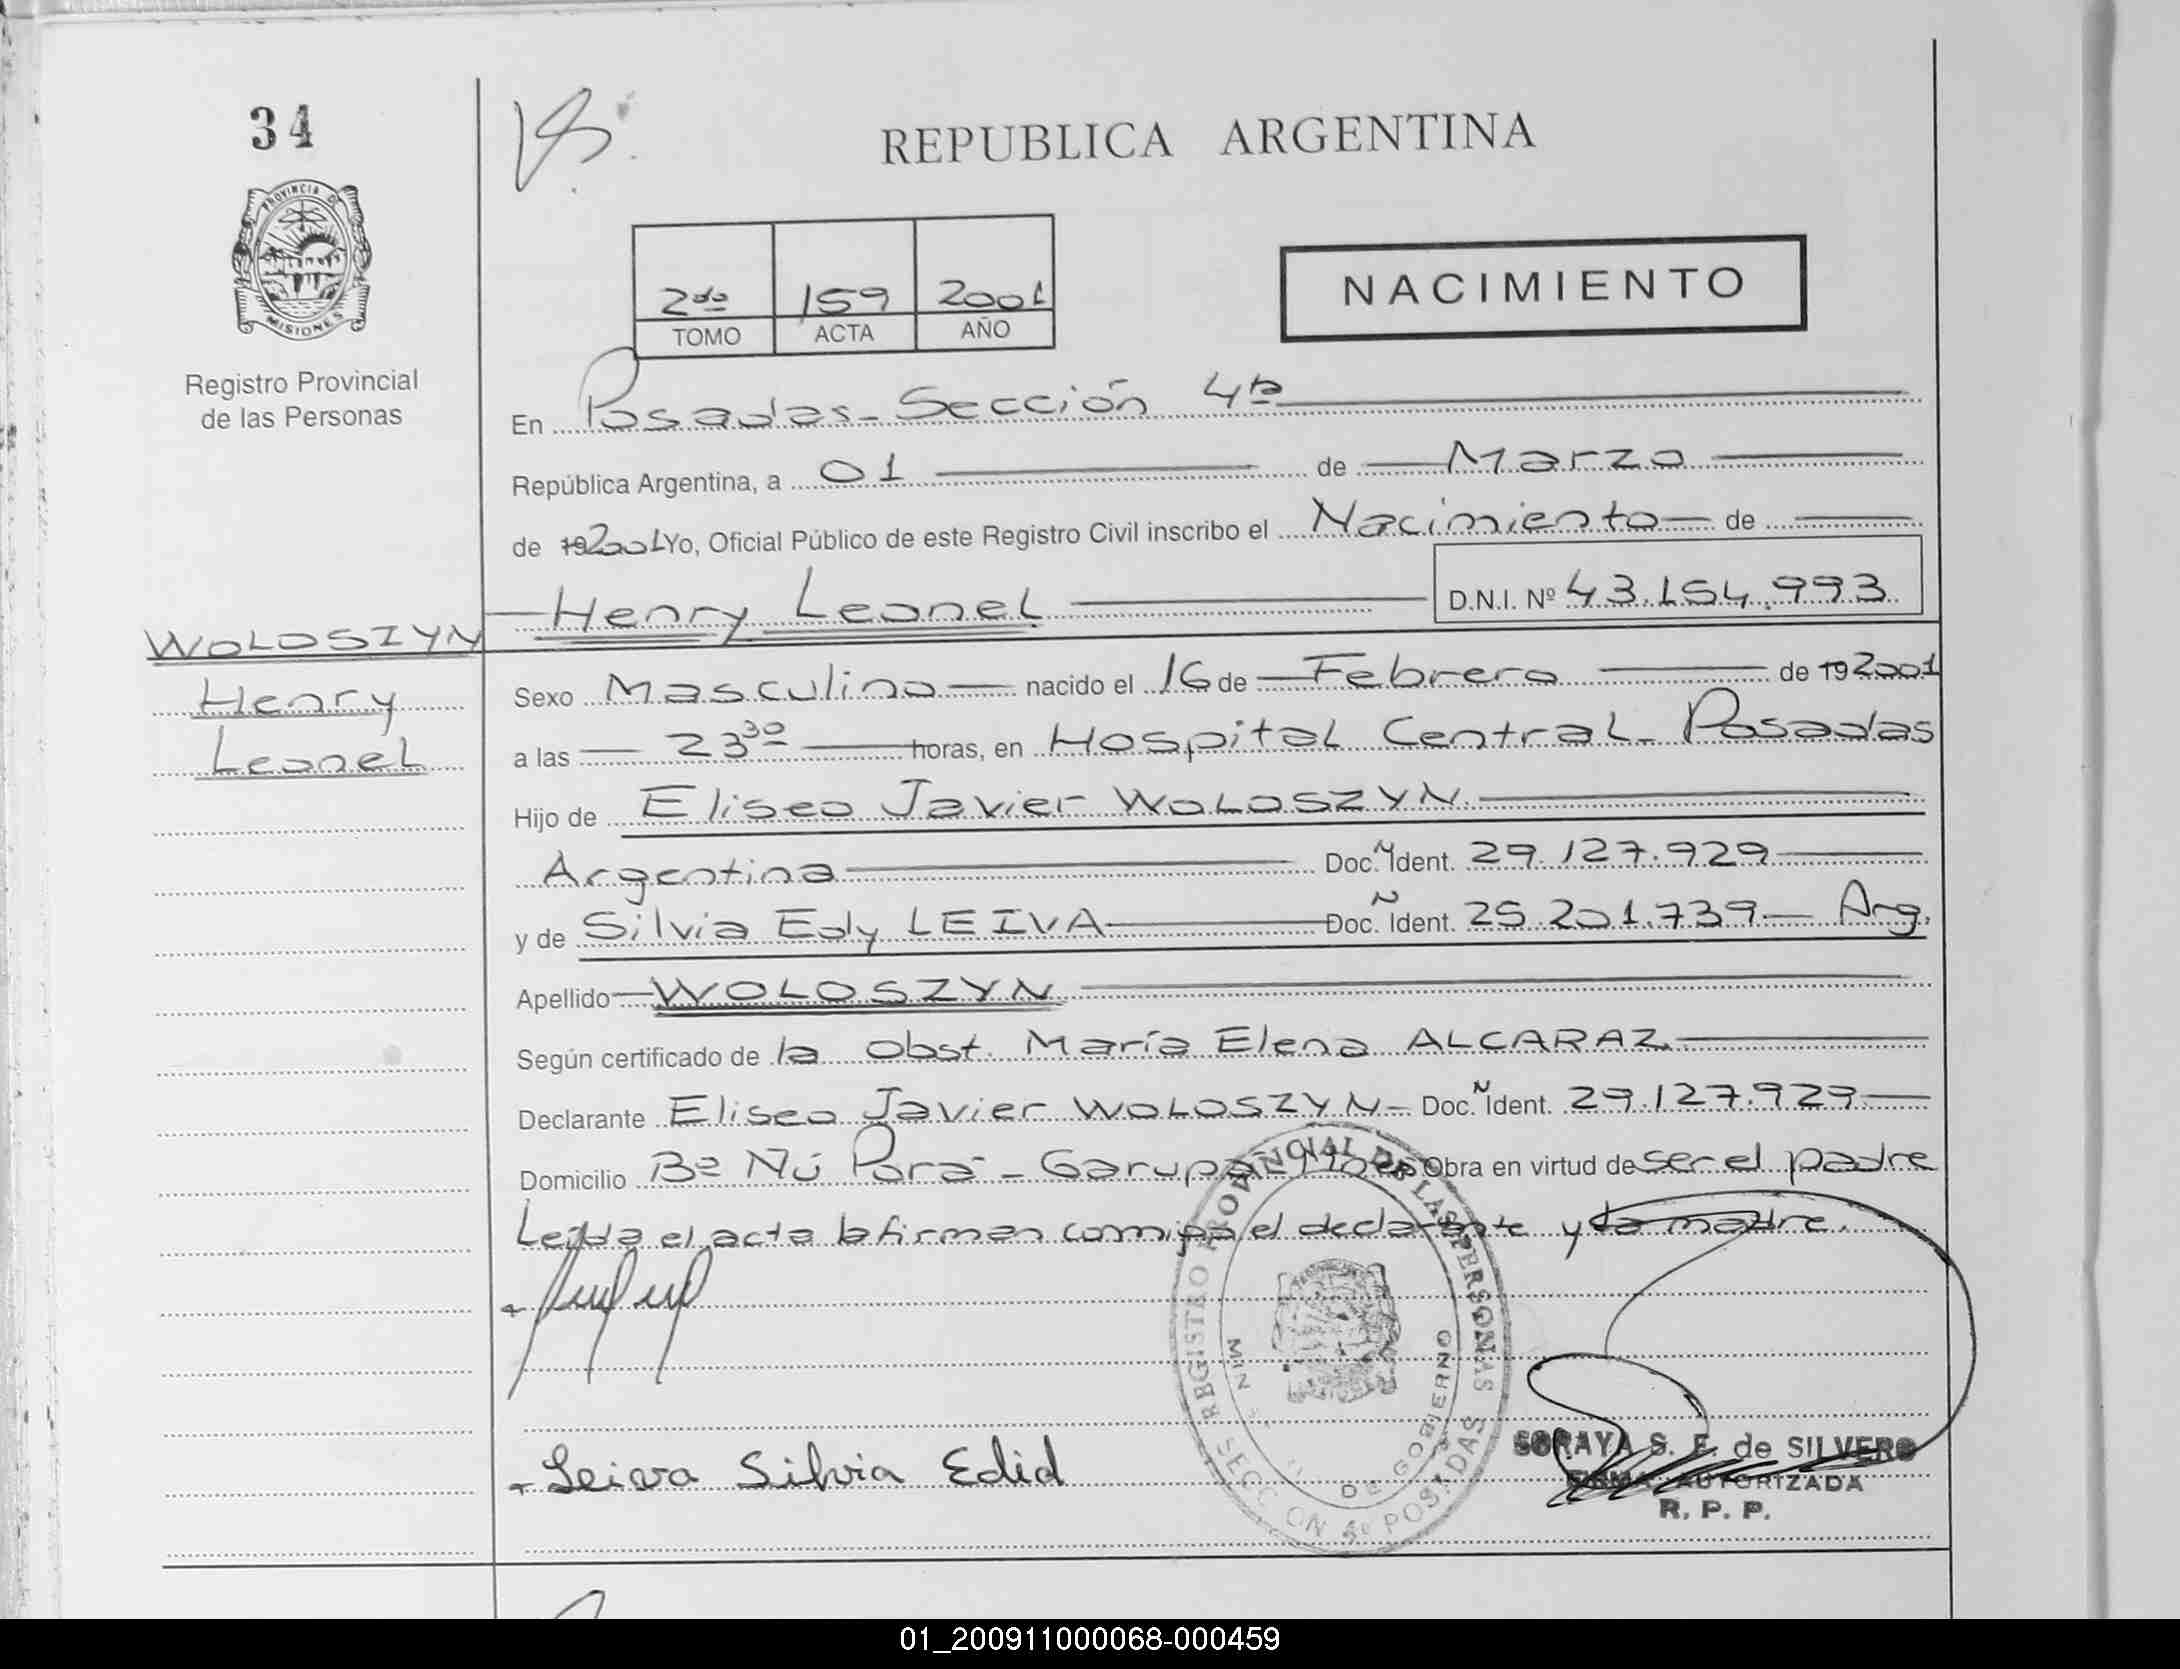 34
REPUBLICA ARGENTINA
PROVINCIA DE
MISIONES
Registro Provincial
de las Personas
2do 159 2001
TOMO ACTA AÑO
NACIMIENTO
En Posadas - Sección 4ta
República Argentina, a 01 de Marzo
de 19 2001 Yo, Oficial Público de este Registro Civil inscribo el Nacimiento de
Henry Leonel D.N.I. Nº 43.154.993
WOLOSZYN
Henry
Leonel
Sexo Masculino nacido el 16 de Febrero de 19 2001
a las 23 30 horas, en Hospital Central - Posadas
Hijo de Eliseo Javier WOLOSZYN
Argentina Doc. N Ident. 29.127.929
y de Silvia Edy LEIVA Doc. N Ident. 25.201.739 - Arg.
Apellido WOLOSZYN
Según certificado de la Obst. María Elena ALCARAZ
Declarante Eliseo Javier WOLOSZYN - Doc. N Ident. 29.127.929
Domicilio Bº Ñú Porá - Garupá Obra en virtud de ser el padre
Leida el acta la firman conmigo el declarante y la madre.
Leiva Silvia Edid
REGISTRO PROVINCIAL DE LAS PERSONAS
DE GOBIERNO
SECCION POSADAS
SORAYA S. E. de SILVERO
FIRMA AUTORIZADA
R. P. P.
01_200911000068-000459